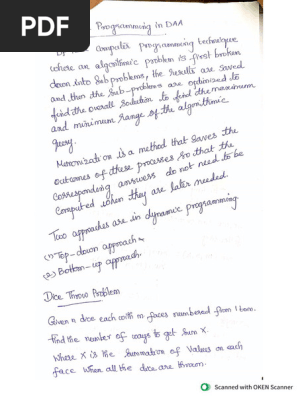 PDF
Programming in DAA
computer programming technique
where an algorithmic problem is first broken
down into sub problems, the results are saved
and then the sub-problems are optimized to
find the overall solution to find the maximum
and minimum range of the algorithmic
query.
Memorization is a method that saves the
outcomes of these processes so that the
corresponding answers do not need to be
computed when they are later needed.
Two approaches are in dynamic programming
(1) Top-down approach
(2) Bottom-up approach.
Dice Throw Problem
Given n dice each with m faces numbered from 1 to m.
Find the number of ways to get sum X.
Where X is the summation of values on each
face when all the dice are thrown.
Scanned with OKEN Scanner